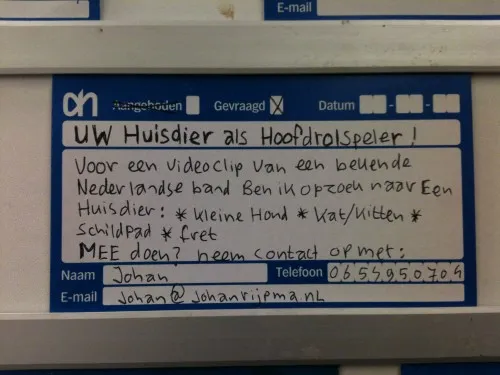 E-mail
ah Aangeboden Gevraagd X Datum - -
UW Huisdier als Hoofdrolspeler!
Voor een videoclip van een bekende
Nederlandse band Ben ik opzoek naar Een
Huisdier: * kleine Hond * Kat/Kitten *
Schildpad * fret
MEE doen? neem contact op met:
Naam Johan Telefoon 0654950704
E-mail Johan@johanrijpma.nl